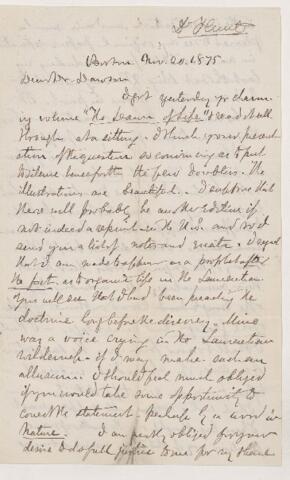 Dr Hunt
Boston Nov. 20. 1875
Dear Mr Dawson
I got yesterday yr charm-
ing volume "The Dawn of Life" & read it all
through at a sitting. I think your present-
ation of the question so convincing as to put
to silence henceforth the few doubters. The
illustrations are beautiful. I suppose that
there will probably be another edition if
not indeed a reprint and so I
send you a list of notes and errata. I regret
that I am made to appear as a prophet after
the fact, as to organic life in the Laurentian.
You will see that I had been preaching the
doctrine long before the discovery. Mine
was a voice crying in the Laurentian
wilderness if I may make such an
allusion. I should feel much obliged
if you would take some opportunity to
correct the statement, perhaps by a word in
Nature. I am greatly obliged for your
desire to do full justice to me for my share